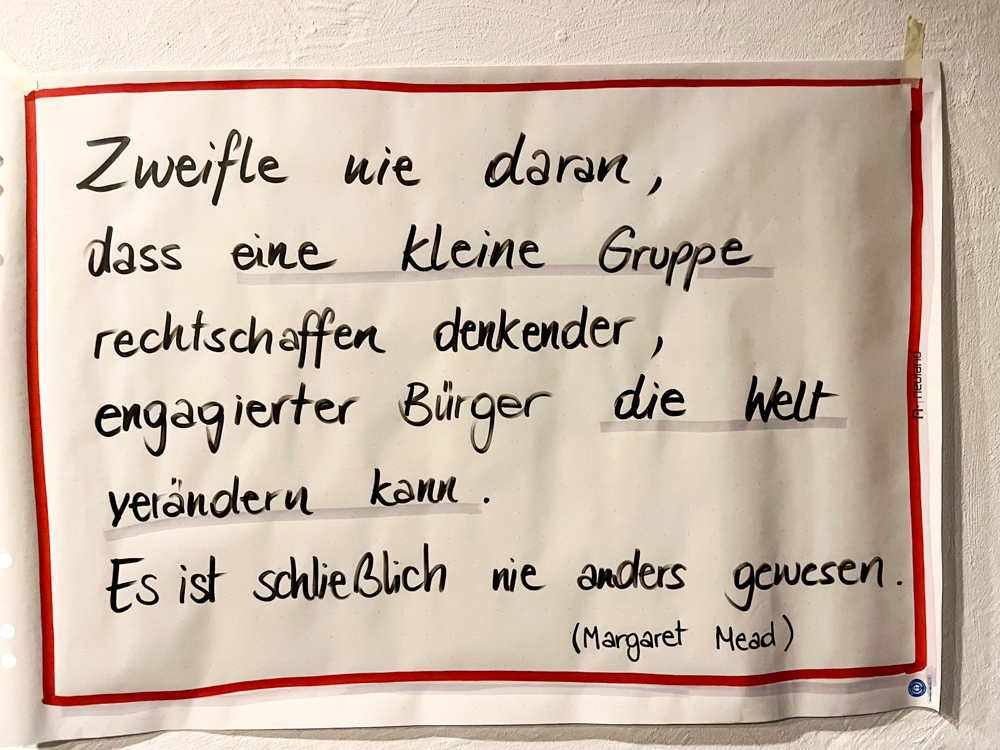 Zweifle nie daran,
dass eine kleine Gruppe
rechtschaffen denkender,
engagierter Bürger die Welt
verändern kann.
Es ist schließlich nie anders gewesen.
(Margaret Mead)
neuland